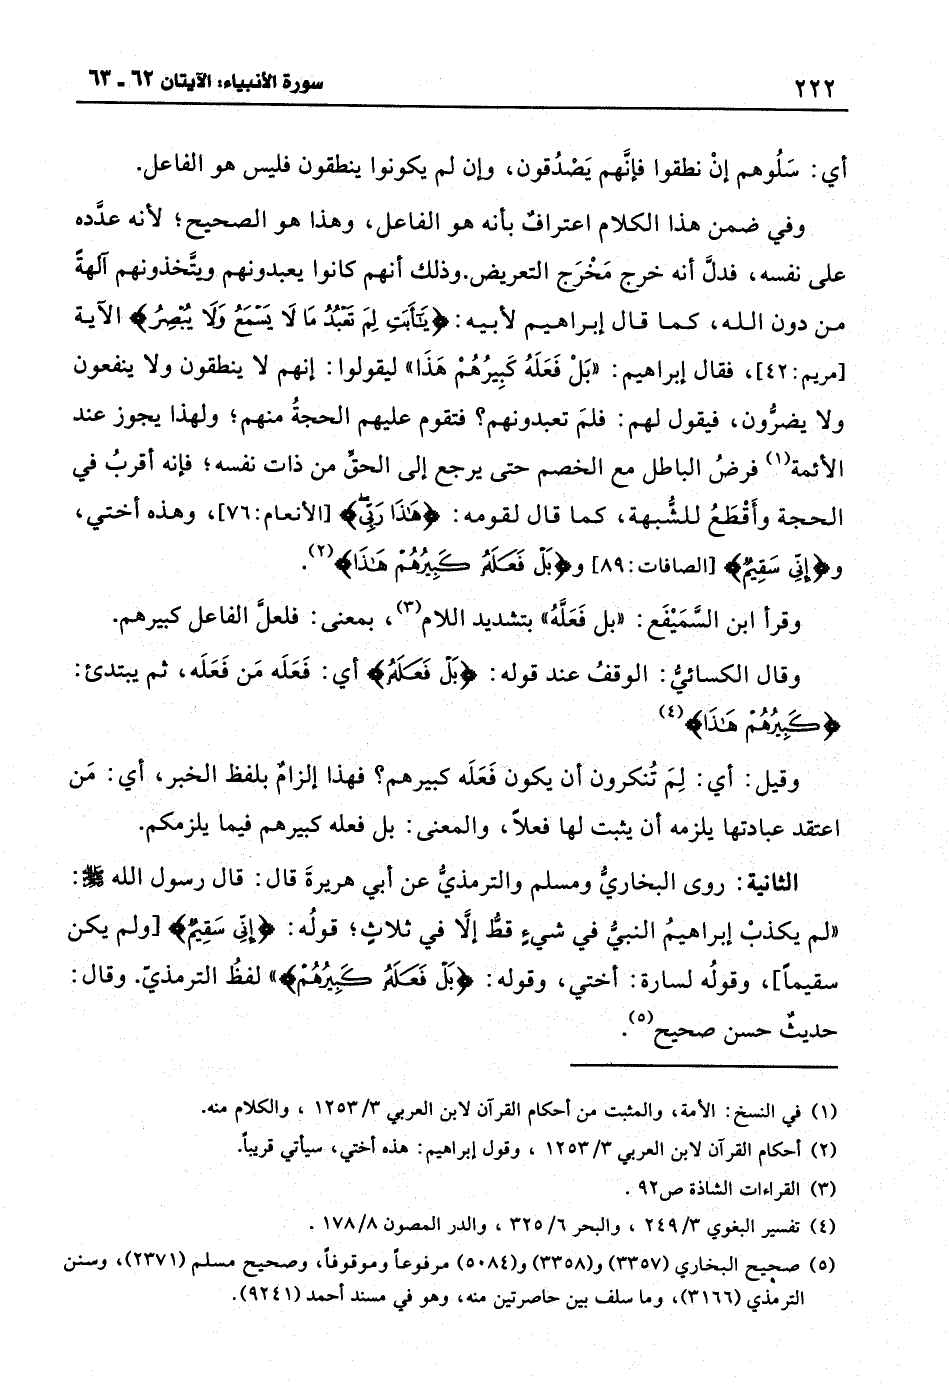 ٢٢٢ سورة الأنبياء: الآيتان ٦٢ - ٦٣
أي: سَلُوهم إنْ نطقوا فإنَّهم يَصْدُقون، وإن لم يكونوا ينطقون فليس هو الفاعل.
وفي ضمن هذا الكلام اعترافٌ بأنه هو الفاعل، وهذا هو الصحيح؛ لأنه عدَّده
على نفسه، فدلَّ أنه خرج مَخْرَج التعريض. وذلك أنهم كانوا يعبدونهم ويتَّخذونهم آلهةً
من دون الله، كما قال إبراهيم لأبيه: ﴿يَٰٓأَبَتِ لِمَ تَعْبُدُ مَا لَا يَسْمَعُ وَلَا يُبْصِرُ﴾ الآية
[مريم:٤٢]، فقال إبراهيم: «بَلْ فَعَلَهُ كَبِيرُهُمْ هَذَا» ليقولوا: إنهم لا ينطقون ولا ينفعون
ولا يضرُّون، فيقول لهم: فلمَ تعبدونهم؟ فتقوم عليهم الحجةُ منهم؛ ولهذا يجوز عند
الأئمة(١) فرضُ الباطل مع الخصم حتى يرجع إلى الحقِّ من ذات نفسه؛ فإنه أقربُ في
الحجة وأَقْطَعُ للشُّبهة، كما قال لقومه: ﴿هَٰذَا رَبِّي﴾ [الأنعام:٧٦]، وهذه أختي،
و﴿إِنِّي سَقِيمٌ﴾ [الصافات:٨٩] و﴿بَلْ فَعَلَهُۥ كَبِيرُهُمْ هَٰذَا﴾(٢).
وقرأ ابن السَّمَيْفَع: «بل فَعَلَّهُ» بتشديد اللام(٣)، بمعنى: فلعلَّ الفاعل كبيرهم.
وقال الكسائيُّ: الوقفُ عند قوله: ﴿بَلْ فَعَلَهُۥ﴾ أي: فَعَلَه مَن فَعَلَه، ثم يبتدئ:
﴿كَبِيرُهُمْ هَٰذَا﴾(٤)
وقيل: أي: لِمَ تُنكرون أن يكون فَعَلَه كبيرهم؟ فهذا إلزامٌ بلفظ الخبر، أي: مَن
اعتقد عبادتها يلزمه أن يثبت لها فعلاً، والمعنى: بل فعله كبيرهم فيما يلزمكم.
الثانية: روى البخاريُّ ومسلم والترمذيُّ عن أبي هريرةَ قال: قال رسول الله ﷺ:
«لم يكذبْ إبراهيمُ النبيُّ في شيءٍ قطُّ إلَّا في ثلاثٍ؛ قولُه: ﴿إِنِّي سَقِيمٌ﴾ [ولم يكن
سقيماً]، وقولُه لسارة: أختي، وقوله: ﴿بَلْ فَعَلَهُۥ كَبِيرُهُمْ﴾» لفظُ الترمذيّ. وقال:
حديثٌ حسن صحيح(٥).
(١) في النسخ: الأمة، والمثبت من أحكام القرآن لابن العربي ٣/ ١٢٥٣ ، والكلام منه.
(٢) أحكام القرآن لابن العربي ٣/ ١٢٥٣ ، وقول إبراهيم: هذه أختي، سيأتي قريباً.
(٣) القراءات الشاذة ص٩٢ .
(٤) تفسير البغوي ٣/ ٢٤٩ ، والبحر ٦/ ٣٢٥ ، والدر المصون ٨/ ١٧٨ .
(٥) صحيح البخاري (٣٣٥٧) و(٣٣٥٨) و(٥٠٨٤) مرفوعاً وموقوفاً، وصحيح مسلم (٢٣٧١)، وسنن
الترمذي (٣١٦٦)، وما سلف بين حاصرتين منه، وهو في مسند أحمد (٩٢٤١).